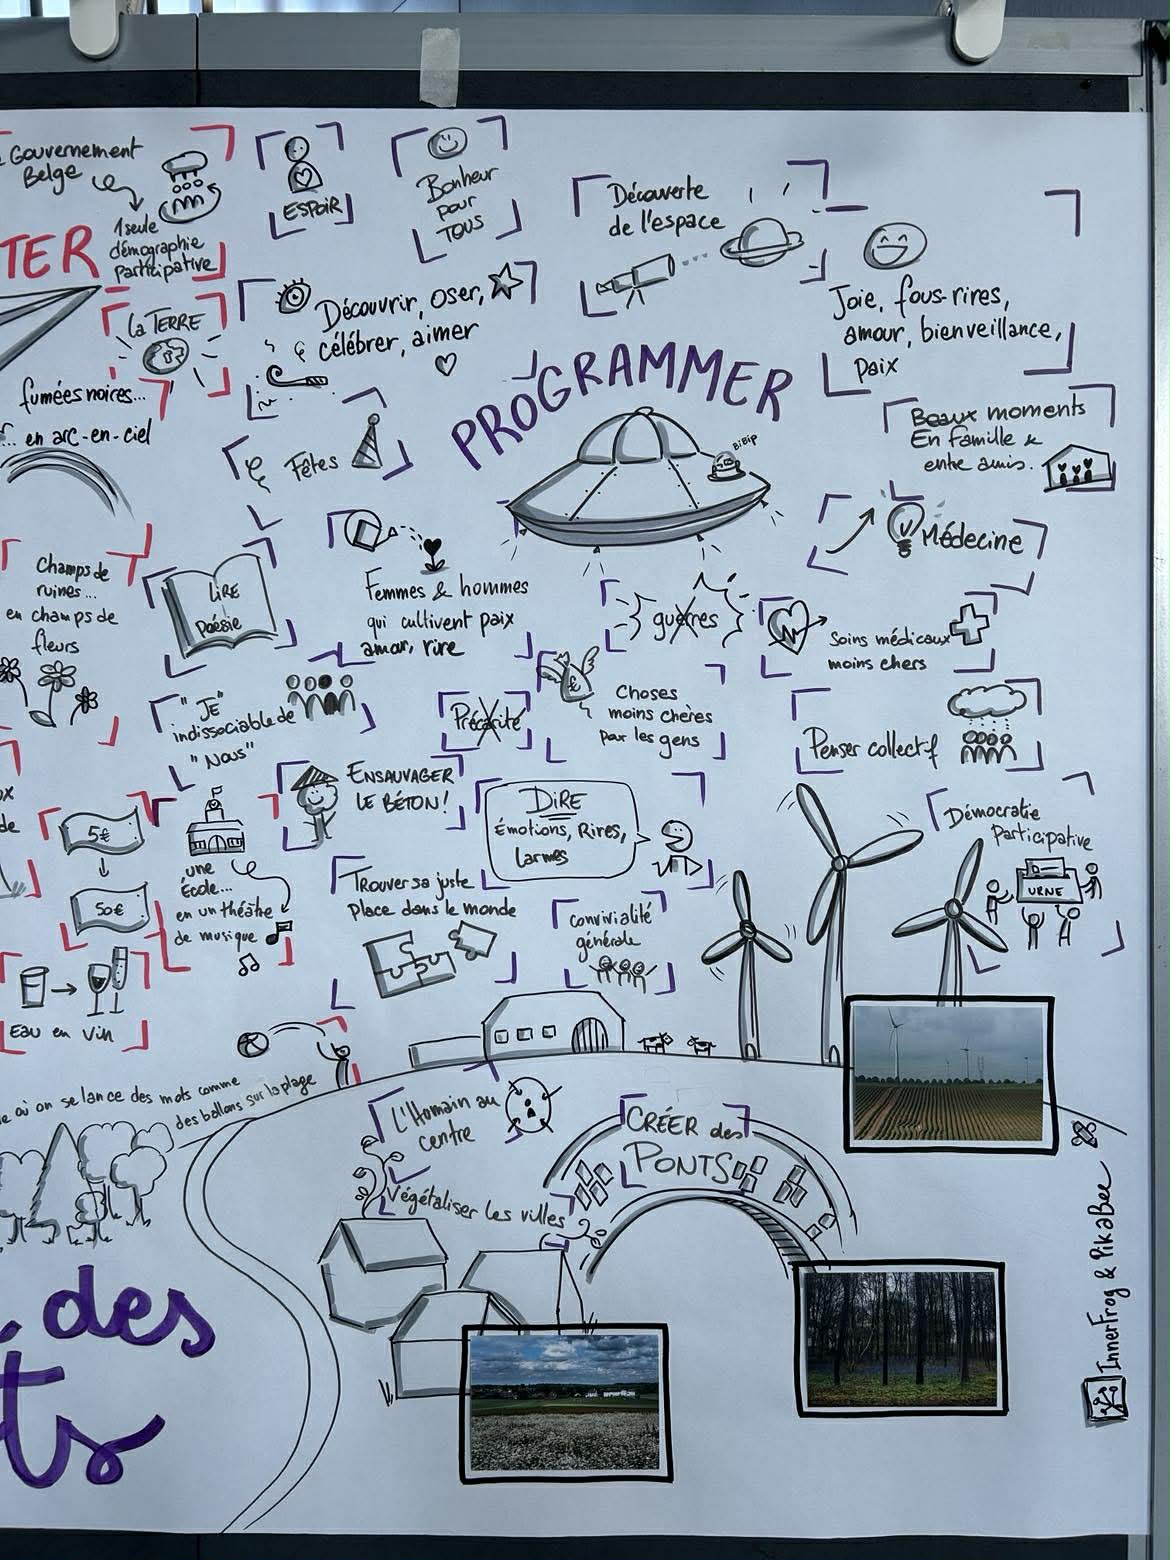 Gouvernement
Belge
1 seule
démographie
participative
TER
ESPOIR
Bonheur
pour
TOUS
Découverte
de l'espace
Joie, fous-rires,
amour, bienveillance,
paix
La TERRE
Découvrir, oser,
célébrer, aimer
fumées noires...
... en arc-en-ciel
Fêtes
PROGRAMMER
BiBip
Beaux moments
En famille &
entre amis.
Médecine
Champs de
ruines...
en champs de
fleurs
LiRE
Poésie
Femmes & hommes
qui cultivent paix
amour, rire
guerres
Soins médicaux
moins chers
"JE"
indissociable de
"NOUS"
Précarité
Choses
moins chères
par les gens
Penser collectif
ENSAUVAGER
LE BÉTON!
DIRE
Émotions, Rires,
Larmes
Démocratie
Participative
URNE
5€
50€
une
École...
en un théâtre
de musique
Trouver sa juste
place dans le monde
convivialité
générale
Eau en Vin
où on se lance des mots comme
des ballons sur la plage
L'Humain au
centre
CRÉER des
PONTS
Végétaliser les villes
des
ts
InnerFrog & PikaBee